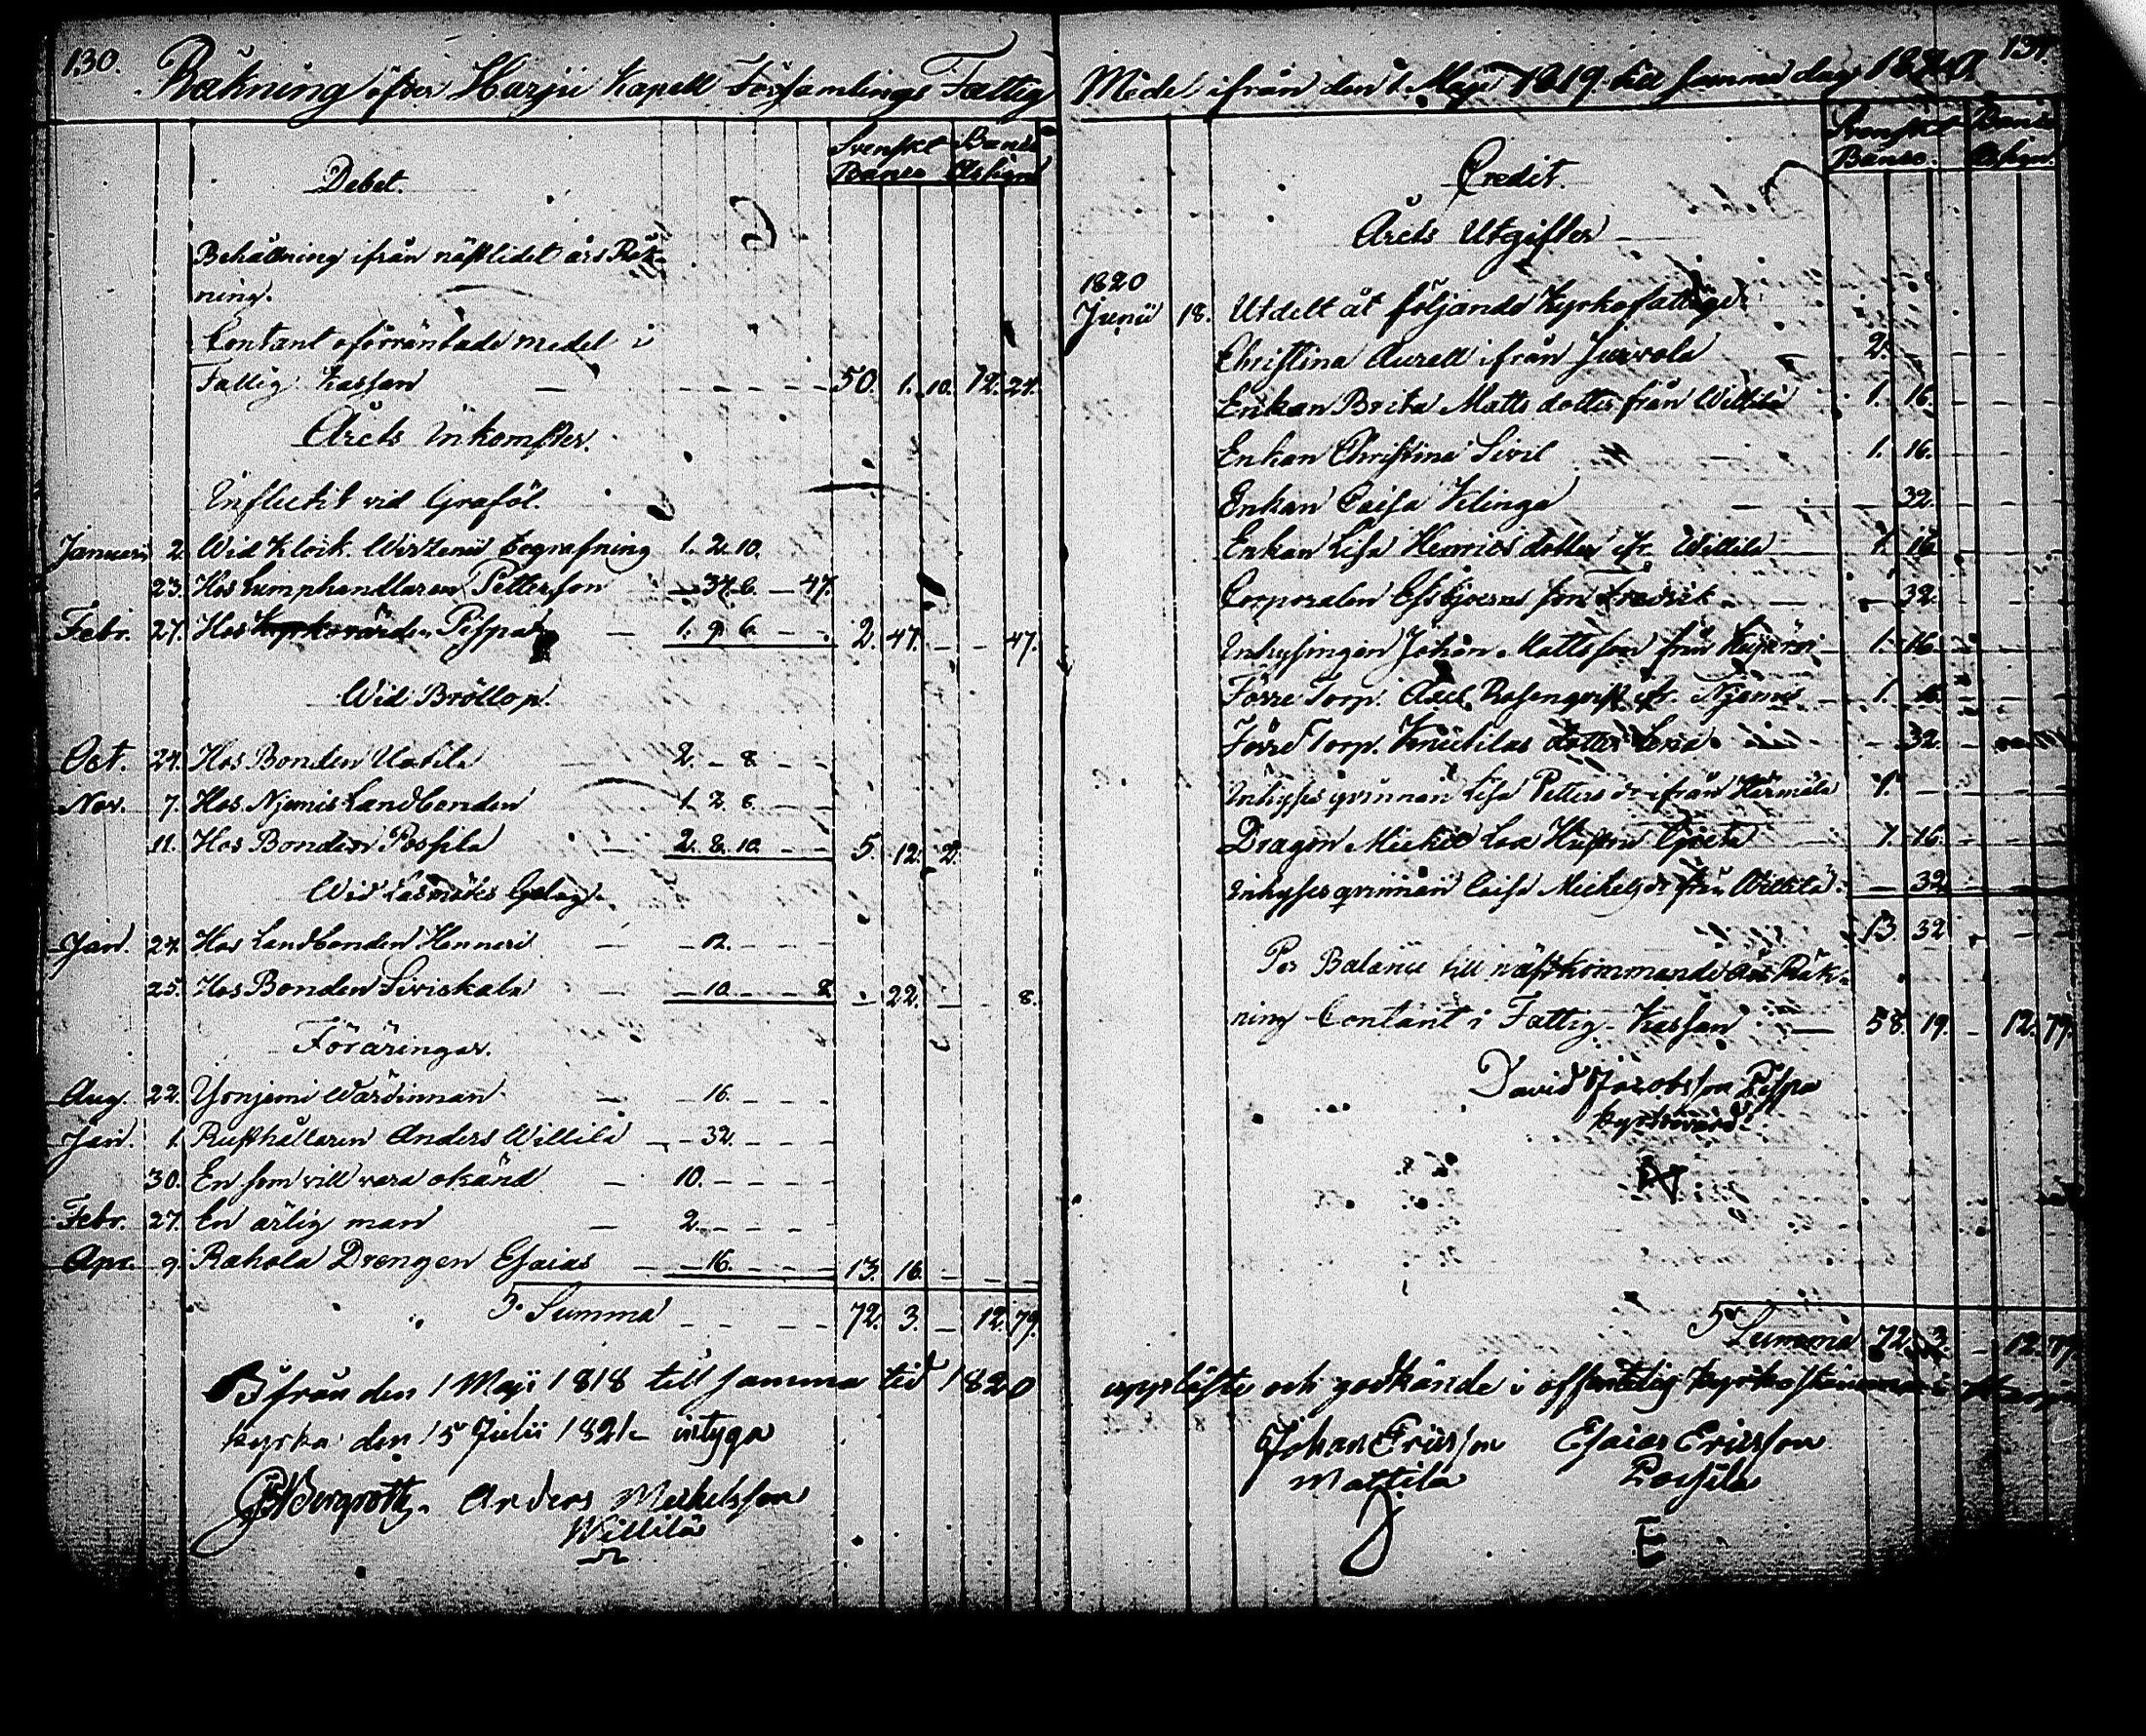 130.
Räkning öfver Harju Kapell Församlings Fattig
Svenskt Banco
Banco Assign.
Debet.
Behållning ifrån nästlidet års Räk-
ning.
Contant oförräntade medel i
Fattig Kassan — 50. 1. 10. 12. 24.
Årets Inkomster.
Influtit vid Graföl.
Januari 2. Wid Klock. Begrafning 1. 2. 10.
23. Hos Lumphandlaren Petterson — 37. 6. — 47.
Febr. 27. Hos Kyrkovärden Pispa — 1. 9. 6. — 2. 47. — — 47.
Wid Bröllop.
Oct. 24. Hos Bonden Uotila 2. — 8. — —
Nov. 7. Hos Njemis Landbonden 1. 2. 8. — —
11. Hos Bonden Possila — 2. 8. 10. — — 5. 12. 2.
Wid Läsmötes Gelag.
Jan. 24. Hos Landbonden Honneri — — 12. — — —
25. Hos Bonden Siviskala — — 10. — — 8. — 22. — — 8.
Föräringar.
Aug. 22. Yonjemi Wärdinnan — — 16. — — —
Jan. 1. Rusthållaren Anders Willilä — — 32. — — —
30. En som vill vara okänd — 10. — — — —
Febr. 27. En ärlig man — 2. — — — —
Apr. 9. Rahola Drengen Esaias — — 16. — — — 13. 16. — — —
Summa — — — — 72. 3. — 12. 79.
Ifrån den 1 Maji 1818 till samma tid 1820
kyrka den 15 Julii 1821 intyga
Bergroth. Anders Mickelsson
Willilä
131.
Medel ifrån den 1 Maji 1819 till samma dag 1820
Svenskt Banco.
Banco Assign.
Credit.
Årets Utgifter
1820
Junii 18. Utdelt åt följande Kyrkofattige
Christina Aurell ifrån Juvola 2. — — —
Enkan Brita Matts dotter från Willilä 1. 16. — — —
Enkan Christina Sivil 1. 16. — — —
Enkan Caisa Klinga — — 32. — — —
Enkan Lisa Henrics dotter ifr. Willilä — 1. 16. — — —
Corporalen son Fredrik — — 32. — — —
Inhysingen Johan Mattsson från — 1. 16. — — —
Förre Torp. Axel Rosenqvist ifr. Njemis — 1. 16. — — —
Förre Torp. dotter — 32. —
Inhyses qvinnan Lisa Petters dr ifrån Härmälä 1. — — — —
Dragon Hustru Greta — 1. 16. — — —
Inhyses qvinnan Caisa Mickels dr från Willilä — 32.
13. 32.
Per Balance till nästkommande års Räk-
ning Contant i Fattig-Kassan — 58. 19. — 12. 79.
David Jacobsson Pispa
kyrkovärd.
Summa 72. 3. — 12. 79.
uppläste och godkände i offentelig kyrkostämma i Harju
Johan Ericsson Esaias Ericsson
Mattila Possila
E